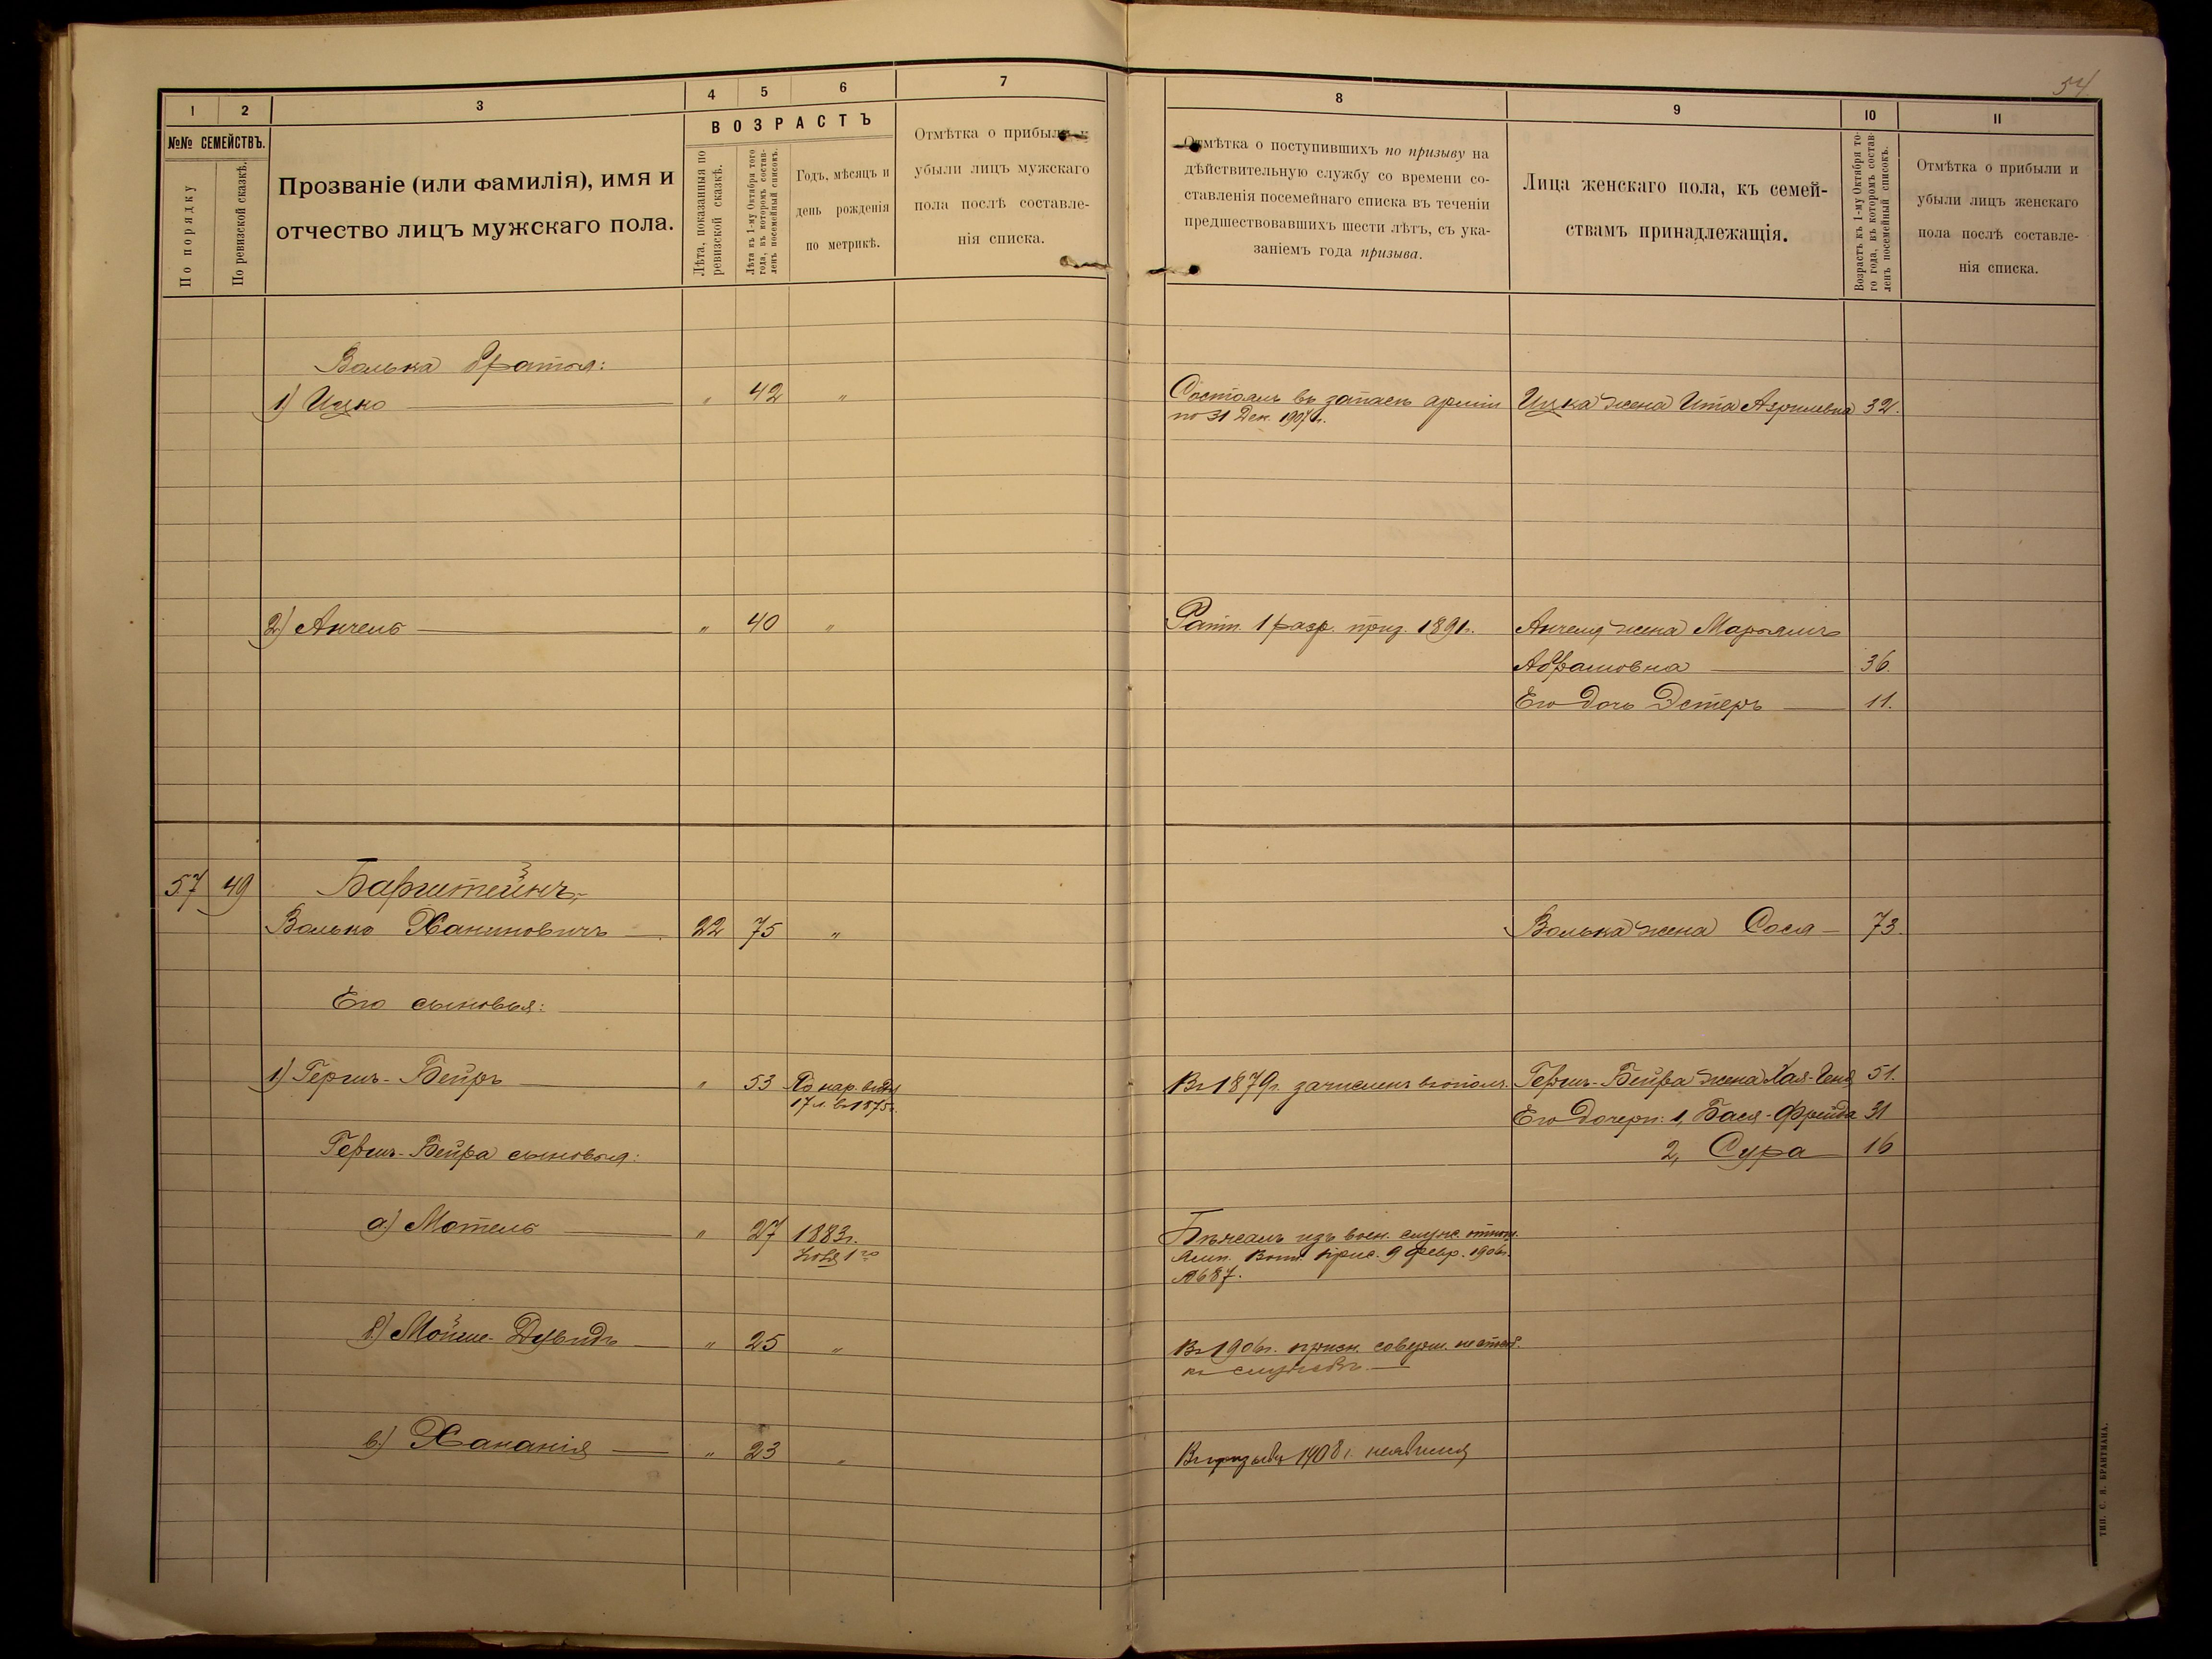 54
1
2
3
4
5
6
7
№№ СЕМЕЙСТВЪ.
По порядку
По ревизской сказкѣ.
Прозваніе (или фамилія), имя и
отчество лицъ мужскаго пола.
ВОЗРАСТЪ
Лѣта, показанныя по
ревизской сказкѣ.
Лѣта къ 1-му Октября того
года, въ которомъ состав-
ленъ посемейный списокъ.
Годъ, мѣсяцъ и
день рожденія
по метрикѣ.
Отмѣтка о прибыли и
убыли лицъ мужскаго
пола послѣ составле-
нія списка.
8
9
10
11
Отмѣтка о поступившихъ по призыву на
дѣйствительную службу со времени со-
ставленія посемейнаго списка въ теченіи
предшествовавшихъ шести лѣтъ, съ ука-
заніемъ года призыва.
Лица женскаго пола, къ семей-
ствамъ принадлежащія.
Возрастъ къ 1-му Октября то-
го года, въ которомъ состав-
ленъ посемейный списокъ.
Отмѣтка о прибыли и
убыли лицъ женскаго
пола послѣ составле-
нія списка.
Волька братья:
1) Ицко — " 42 "
Состоялъ въ запасѣ арміи
по 31 Дек. 1904 г.
Ицка жена Ита Азрилевна 32.
2) Анчель — " 40 "
Ратн. 1 разр. приз. 1891 г.
Анчеля жена Марьямъ
Абрамовна — 36.
Его дочь Эстеръ — 11.
57 49 Барштейнъ,
Волько Ханиновичъ — 22 75 "
Волька жена Сося — 73.
Его сыновья:
1) Гершъ-Бейръ — " 53 По нар. виду
17 л. въ 1875 г.
Въ 1879 г. зачисленъ въ ополч.
Гершъ-Бейра жена Хая- 51.
Его дочери: 1, Бася-Фрейда 31
2, Сура — 16
Гершъ-Бейра сыновья:
а) Мотель — " 27 1883 г.
1го
Бѣжалъ изъ воен. служ.
9 Февр. 1906 г.
№ 687.
б) Мойше-Дувидъ — " 25 "
Въ 1906 г. призн. соверш. неспособ.
къ службѣ. —
в) Хананія — " 23 "
Въ призывѣ 1908 г. неявился
ТИП. С. Н. БРАНТМАНА.